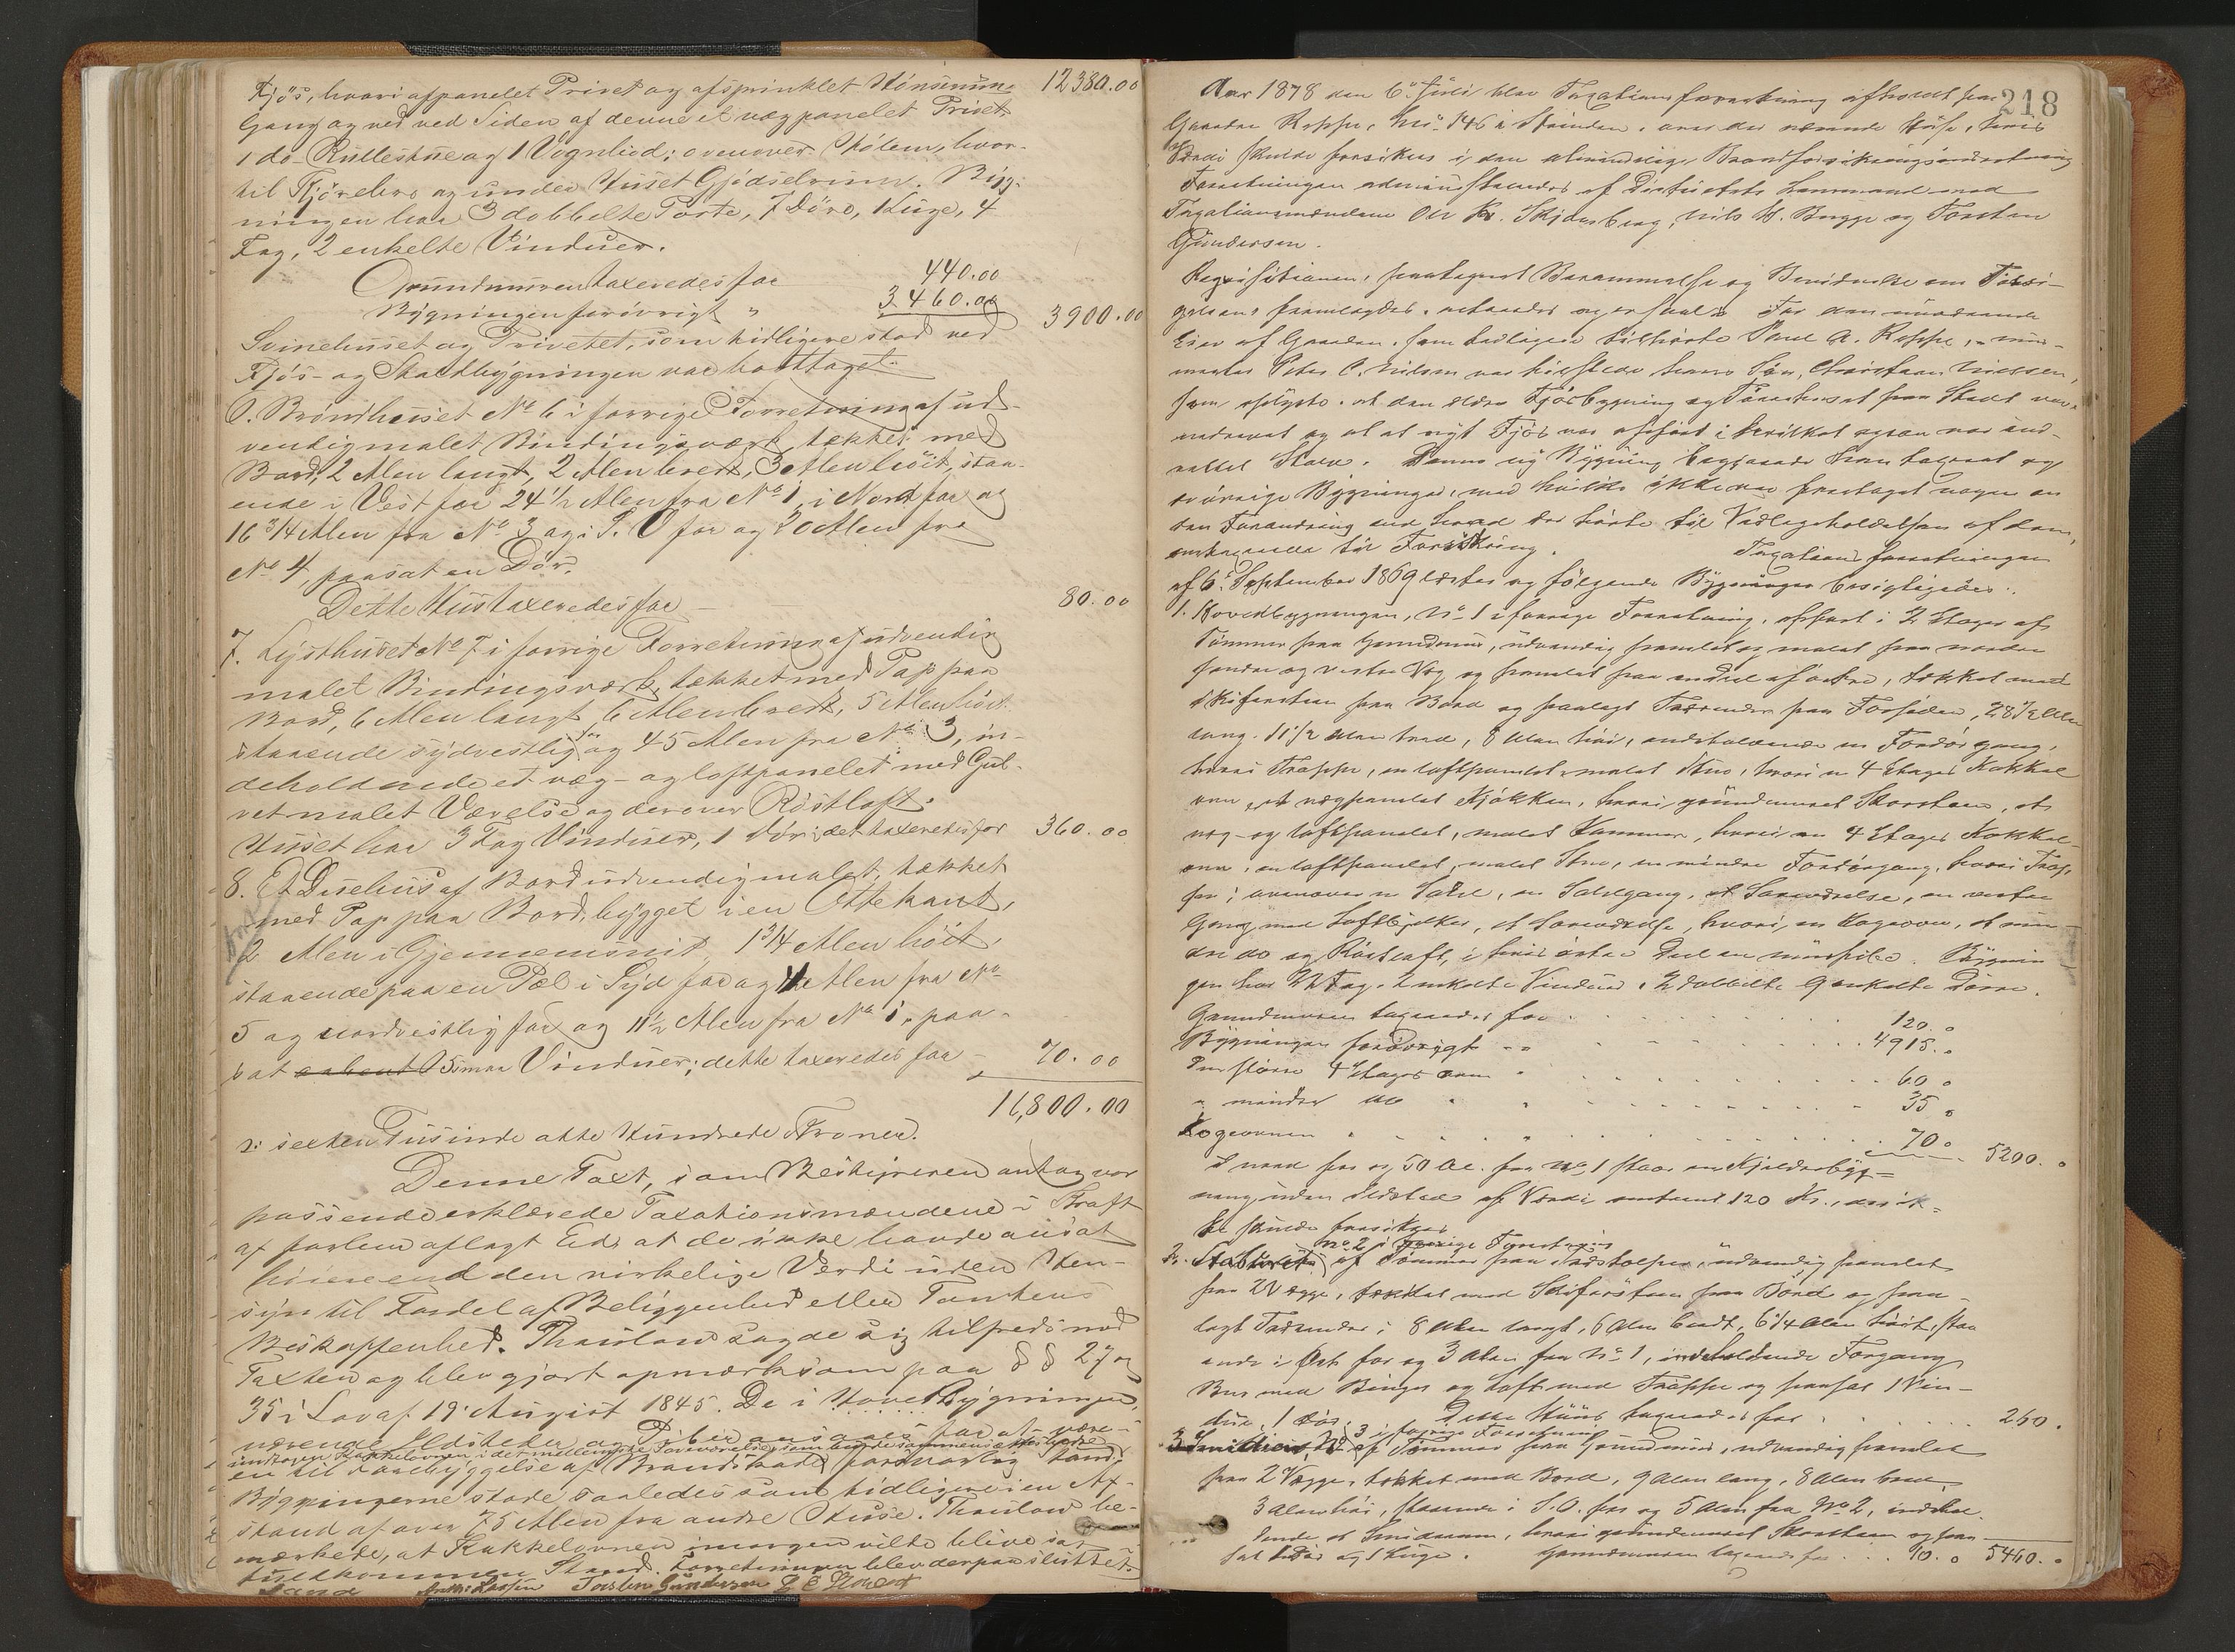 Fjøs, hvori afpanelet Privet og afsprinklet Hønserum, 12380.00
Gang og ved ved Siden af denne et vægpanelet Privet,
1 do Rullestue og 1 Vognbod; ovenover Stølem, hvor-
til Kjørebro og under Huset Gjødselrum. Byg-
ningen har 3 dobbelte Porte, 7 Døre, 1 Luge, 4
Fag, 2 enkelte Vinduer.
Grundmuren taxeredes for 440.00
Bygningen forøvrigt " 3460.00 3900.00
Svinehuset og Privetet, som tidligere stod ved
Fjøs- og Staldbygningen var borttaget.
6. Brøndhuset No 6 i forrige Forretning af ud-
vendig malet Bindingsværk, tækket med
Bord, 2 Alen langt, 2 Alen bredt, 3 Alen høit, staa-
ende i Vest for 24 1/2 Alen fra No 1, i Nord for og
16 3/4 Alen fra No 3 og i S. O for og 20 Alen fra
No 4, paasat en Dør.
Dette Hus taxeredes for 80.00
7. Lysthuset No 7 i forrige Forretning af udvendig
malet Bindingsværk, tækket med Pap paa
Bord, 6 Alen langt, 6 Alen bredt, 5 Alen høit
staaende sydvestlig for og 45 Alen fra No 3, in-
deholdende et væg- og loftpanelet med Gul-
vet malet Værelse og derover Røstloft.
Huset har 3 Fag Vinduer, 1 Dør; det taxeredes for 360.00
8. Et Duehus af Bord udvendig malet, tækket
med Pap paa Bord, bygget i en Ottekant,
2 Alen i Gjennemsnit, 1 3/4 Alen høit,
staaende paa en Pæl i Syd for og 4 Alen fra No
5 og nordvestlig for og 11 1/2 Alen fra No 1, paa-
sat 5 smaa Vinduer; dette taxeredes for 70.00
16,800.00
sexten Tusinde otte Hundrede Kroner.
Denne Taxt, som Bestyreren antog var
passende erklærede Taxationsmændene i Kraft
af forhen aflagt Ed, at de ikke havde ansat
høiere end den virkelige Værdi uden Hen-
syn til Fordel af Beliggenhed eller Tomtens
Beskaffenhed. Thaulow sagde sig tilfreds med
Taxten og blev gjort opmærksom paa §§ 27 og
35 i Lov af 19 August 1845. De i Hovedbygningen
værende Ildsteder og Piber ansaaes for at være
undtagen Kakkelovnen i det mellemste Soveværelse,
en til Forebyggelse af Brandskade forsvarlig Stand;
Bygningerne stode saaledes som tidligere i en Af-
stand af over 75 Alen fra andre Huse. Thaulow be-
mærkede, at Kakkelovnen imorgen vilde blive sat
i fuldkommen Stand. Forretningen blev derpaa sluttet.
Torsten Gundersen
218
Aar 1878 den 6te Juli blev Taxationsforretning afholdt paa
Gaarden Reppe, No 146 i Strinden, over der værende Huse, hvis
Værdi skulde forsikres i den almindelige Brandforsikringsindretning
Forretningen administreredes af Distriktets Lensmand med
Taxationsmændene Ole Kr. Skjetnberg, Nils H. Bugge og Torsten
Gundersen.
Requisitionen, paategnet Berammelse og Bevidnelse om Tilsi-
gelsen fremlagdes. For den nuværende
Eier af Gaarden, som tidligere tilhørte Paul A. Reppe,
Peter C. Nilsen var tilstede hans Søn, Christian Nielsen,
som oplyste, at den ældre Fjøsbygning og Tørrehuset paa Stedet var
nedrevet og at et nyt Fjøs var opført
Stald. Denne ny Bygning begjærede han taxeret og
de øvrige Bygninger, med hvilke ikke var foretaget nogen an-
den Forandring end hvad der hørte til Vedligeholdelsen af dem,
omtaxerede til Forsikring. Taxationsforretningen
af 6. September 1869 læstes og følgende Bygninger besigtigedes:
1. Hovedbygningen, No 1 i forrige Forretning, opført i 2 Etager af
Tømmer paa Grundmur, udvendig panelet og malet paa nordre
søndre og vestre Væg og panelet paa endel af østre, tækket med
Skifersteen paa Bord og paalagt Tagrender paa Forsiden, 28 1/2 Alen
lang, 11 1/2 Alen bred, 8 Alen høi, indeholdende en Fordørgang,
hvori Trappe, en loftpanelet malet Stue, hvori en 4 Etages Kakkel-
ovn, et vægpanelet Kjøkken, hvori grundmuret Skorsteen, et
væg- og loftpanelet, malet Kammer, hvori en 4 Etages Kakkel-
ovn, en loftpanelet, malet Stue, en mindre Fordørgang, hvori Trap-
pe; ovenover en Sahl, en Sahlsgang, et Soveværelse, en vestre
Gang med Loftbjelker, et Soveværelse, hvori en Kogeovn, et min-
dre do og Røstloft, i hvis østre Deel en murpibe. Bygnin-
gen har 22 Fag, 2 enkelte Vinduer, 2 dobbelte 9 enkelte Dørre.
Grundmuren taxeredes for 120.
Bygningen forøvrigt 4915.
Den større 4 Etages ovn 60
" mindre do 35
Kogeovnen 70 5200.
I nord for og 50 Al. fra No 1 staar en Kjelderbyg-
ning uden Ildsted af Værdi omtrent 120 Kr., der ik-
ke skulde forsikres
2. Stabburet No 2 i forrige Forretning af Tømmer paa Stolper, udvendig panelet
paa 2 Vægge, tækket med Skifersteen paa Bord og paa-
lagt Tagrender; 8 Alen langt, 6 Alen bredt, 6 1/4 Alen høit, staa-
ende i Øst for og 3 Alen fra No 1, indeholdende Forgang
Bur med Binger og Loft med Trappe og paasat 1 Vin-
due, 1 Dør. Dette Huus taxeredes for 250.
3. Smidien, No 3 i forrige Forretning af Tømmer paa Grundmur, udvendig panelet
paa 2 Vægge, tækket med Bord, 9 Alen lang, 8 Alen bred,
3 Alen høi, staaende i S.O. for og 5 Alen fra No 2, indehol-
dende et Smiderum, hvori grundmuret Skorsteen og paa-
sat Dør og 1 Luge. Grundmuren taxeredes for 10. 5460.